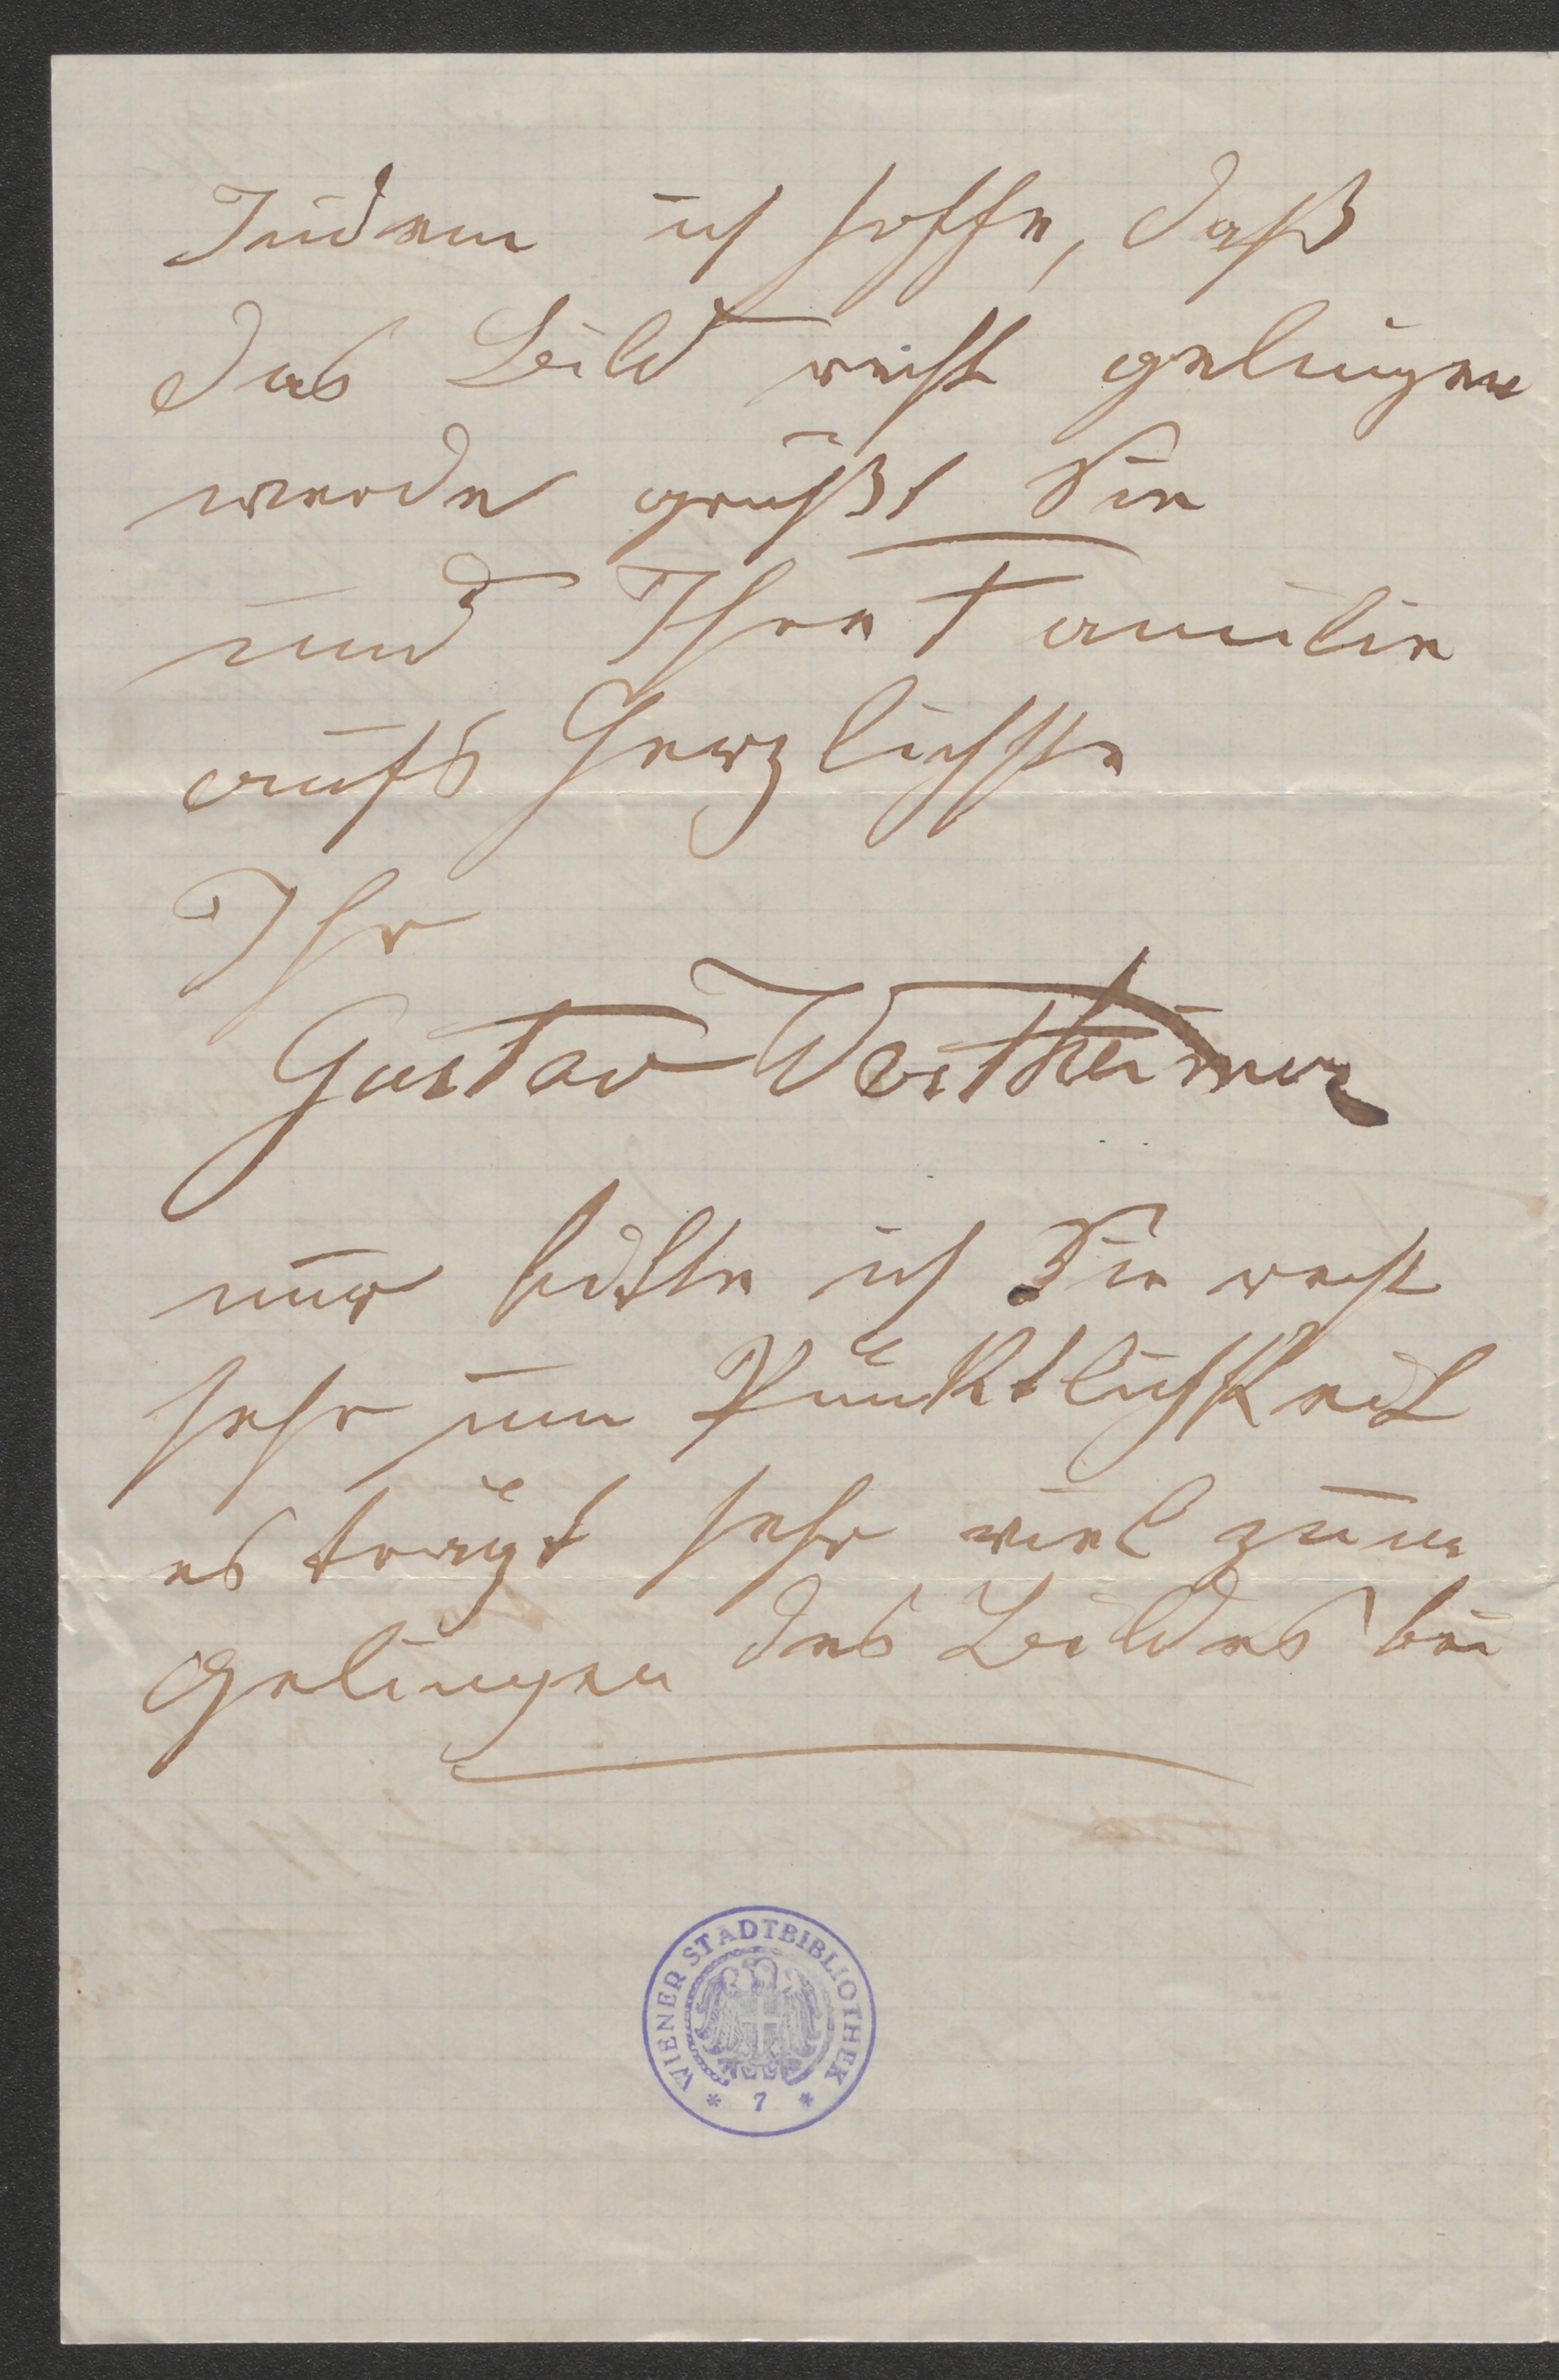 Indem ich hoffe, daß
das Bild recht gelingen
werde grüßt Sie
und Ihre Familie
aufs Herzlichste
Ihr
Gustav Wertheimer
nur bitte ich Sie recht
sehr um Pünktlichkeit
es trägt sehr viel zum
Gelingen des Bildes bei
WIENER STADTBIBLIOTHEK
* 7 *